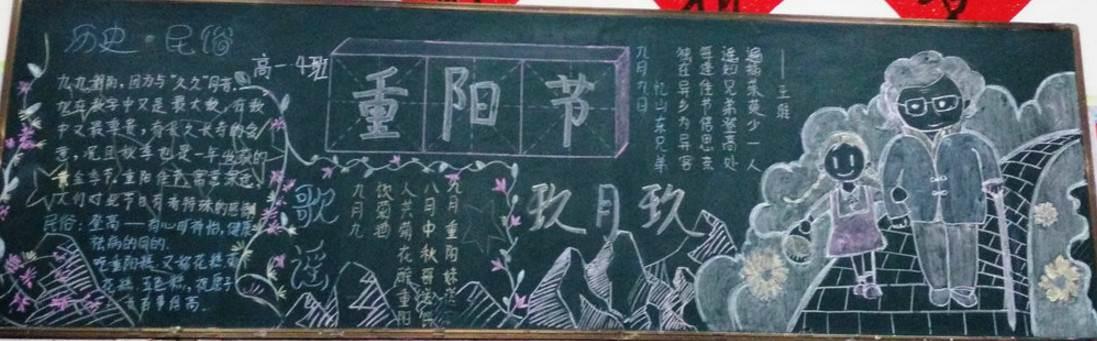 历史·民俗
高一4班
九九重阳，因为与"久久"同音，
九在数字中又是最大数，有
中又最尊贵，有长久长寿的含
意，况且秋季也是一年收获的
黄金季节，重阳佳节，寓意深
人们对此节日有着特殊的感
民俗：登高——有心旷神怡，健身
祛病的目的。
吃重阳糕，又称花糕
花糕、五色糕
百事俱高。
重阳节
歌谣
九月重阳
八月中秋
人共菊花醉重阳
饮菊酒
九月九
玖月玖
九月九日
忆山东兄弟
独在异乡为异客
每逢佳节倍思亲
遥知兄弟登高处
遍插茱萸少一人
——王维